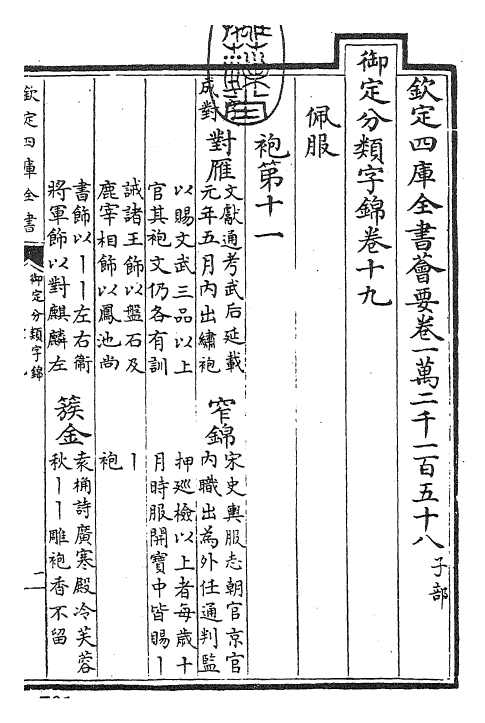 欽定四庫全書薈要卷一萬二千一百五十八 子部
御定分類字錦卷十九
佩服
袍第十一
成對
對雁 文獻通考武后延載
元年五月內出繡袍
以賜文武三品以上
官其袍文仍各有訓
誡諸王飾以盤石及
鹿宰相飾以鳳池尚
書飾以丨丨左右衛
將軍飾以對麒麟左
窄錦 宋史輿服志朝官京官
內職出為外任通判監
押廵檢以上者每歲十
月時服開寶中皆賜丨
丨
袍
簇金 袁桷詩廣寒殿冷芙蓉
秋丨丨雕袍香不留
欽定四庫全書
御定分類字錦
一